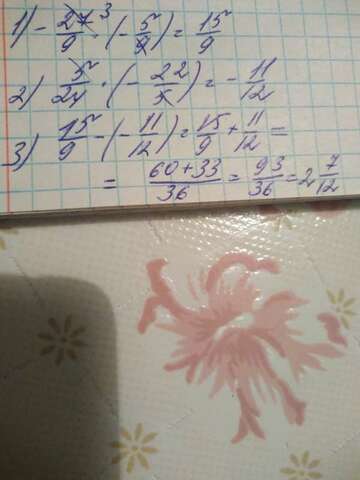 1) - 27/9 3 · (- 5/9) = 15/9
2) 5/24 · (- 22/5) = - 11/12
3) 15/9 - (- 11/12) = 15/9 + 11/12 =
= 60+33/36 = 93/36 = 2 7/12